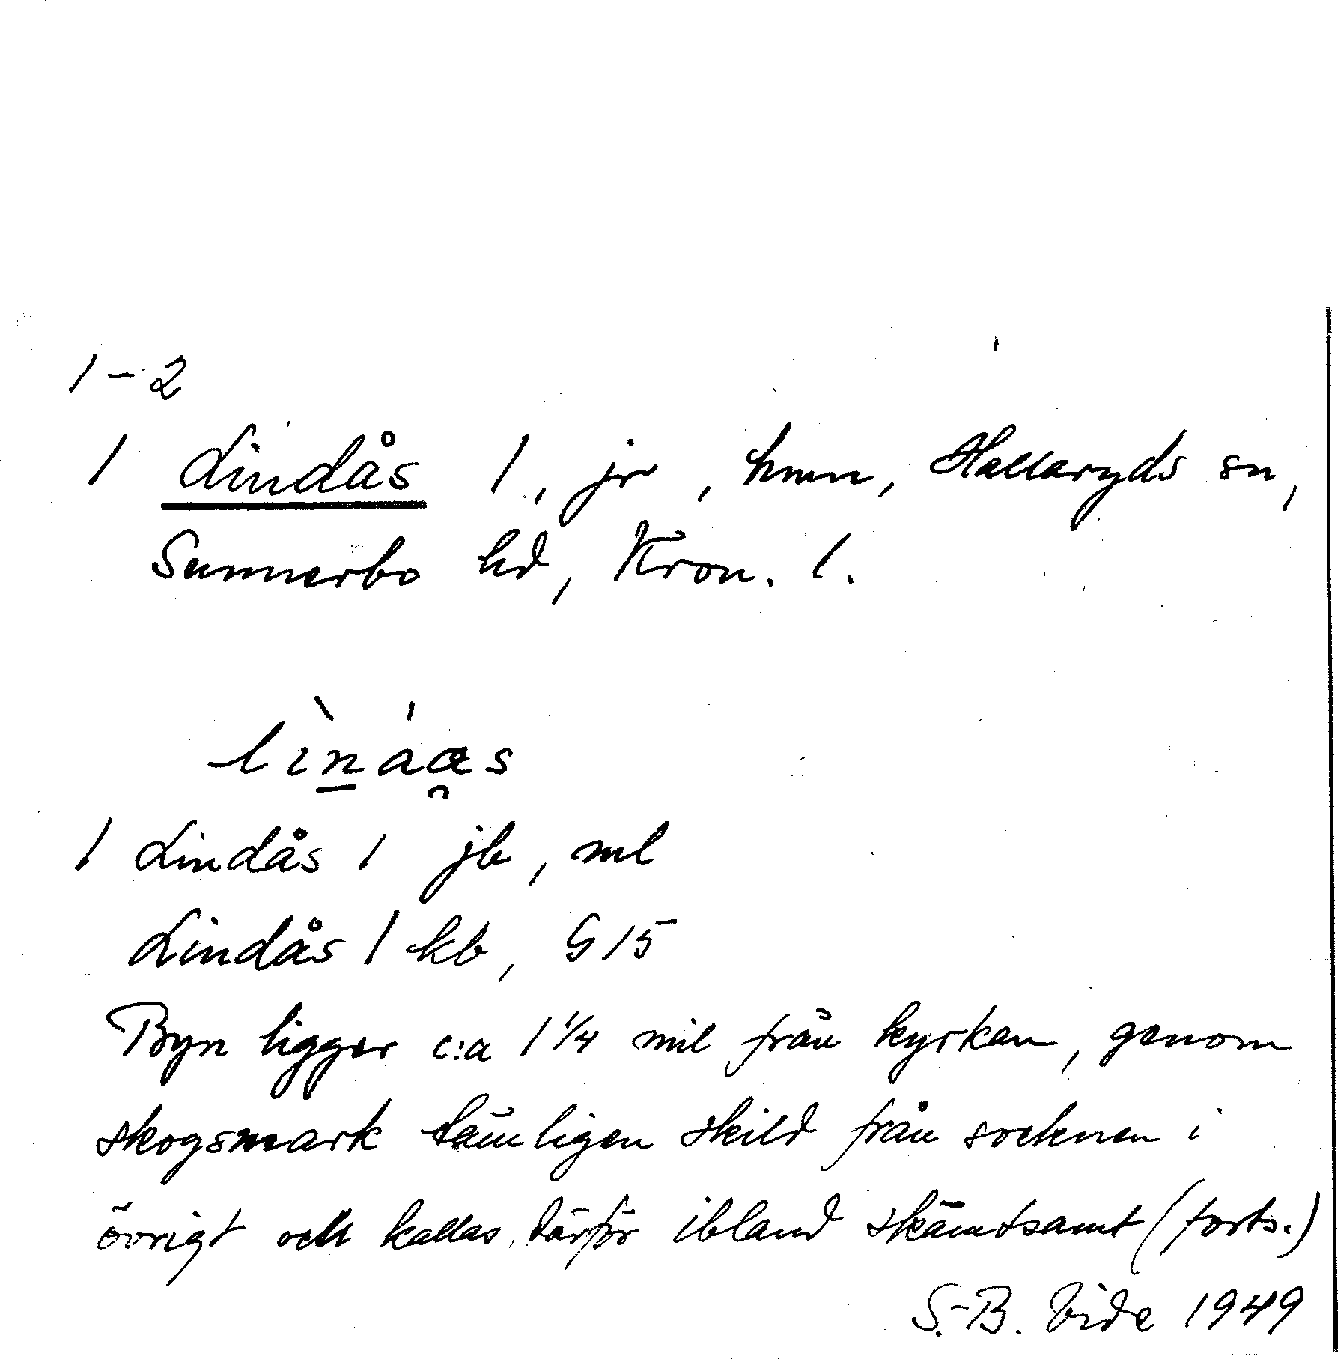 1-2
1 Lindås 1, jr, hmn, Hallaryds sn,
Sunnerbo hd, Kron. l.
lìnáas
1 Lindås 1 jb, ml
Lindås 1 kb, G 15
Byn ligger c:a 1 1/4 mil från kyrkan, genom
skogsmark tämligen skild från socknen i
övrigt och kallas därför ibland skämtsamt (forts.)
S.-B. Vide 1949